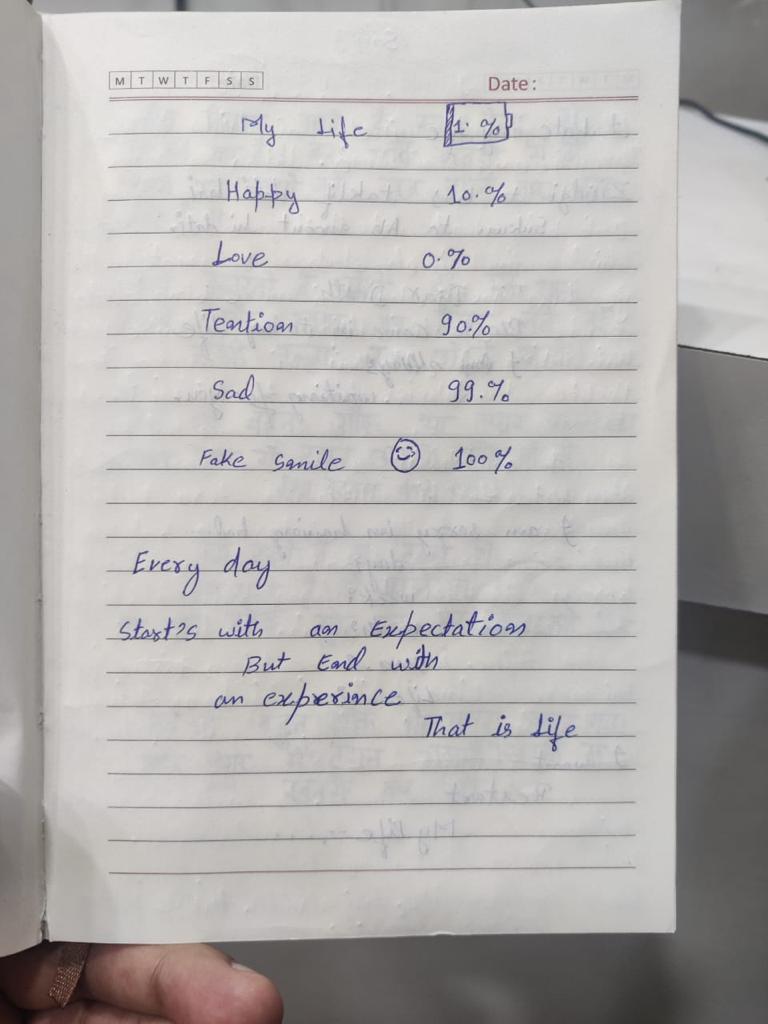 M T W T F S S Date:
My Life 1.%
Happy 10.%
Love 0.%
Tention 90.%
Sad 99.%
Fake Smile 100%
Every day
Start's with an Expectation
But End with
an experince
That is Life